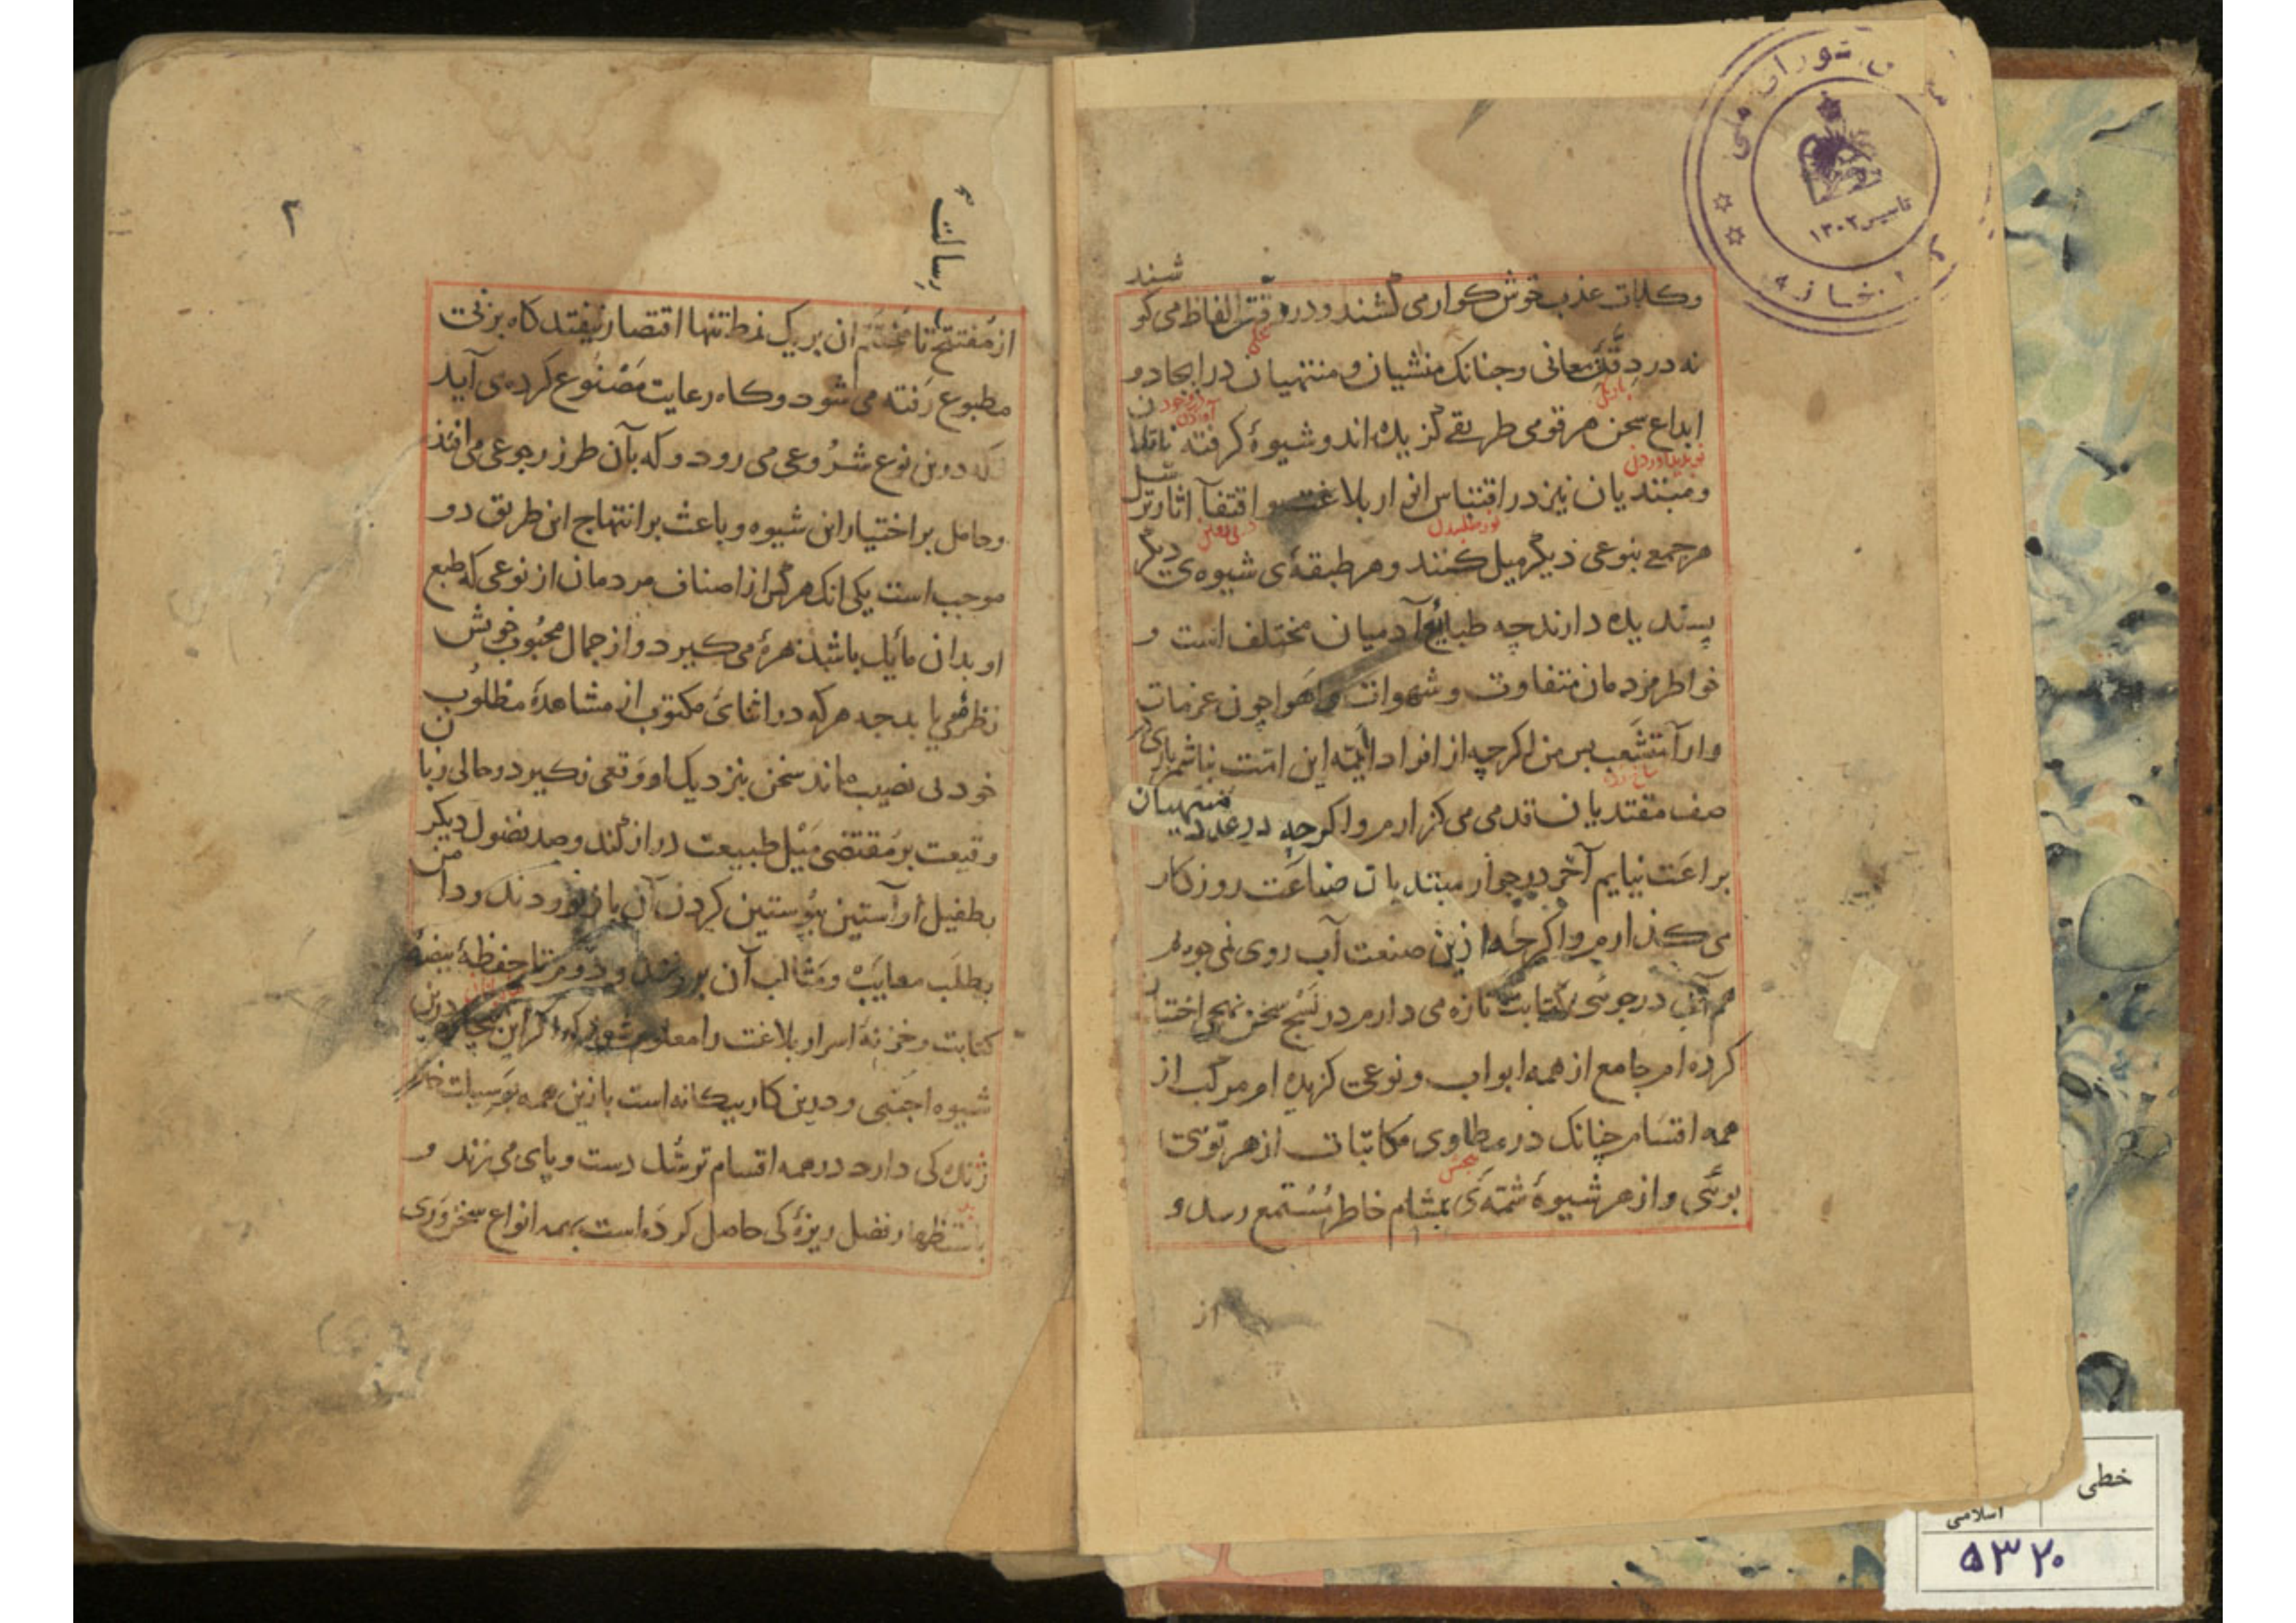 تاسیس ۱۳۰۲
شند
وکلمات عذب خوش کوار می کشند و در رقت الفاظ می کو
نه در دقت معانی وجنانک منشیان و منتهیان در ایجاد و
ابداع سخن هر قومی طریقے کزیده اند و شیوهٔ کرفته ناقلان
نو پدید آوردن
ومبتدیان نیز در اقتباس انوار بلاغت و اقتفآ اثار ترسل
نور طلبیدن
هر جمعے بنوعی دیکر میل کنند و هر طبقهٔ شیوه ی دیکر
پسندیده دارند چه طبایع آدمیان مختلف است و
خواطر مردمان متفاوت و شهوات و اهوا چون عزمات
وارآ متشعب پس من اکرچه از افراد ایمّه این امت نباشم باری در
صف مقتدیان قدمی می کزارم و اکرچه در عدد منتهیان
براعت نیایم آخر در جوار مبتدیان صناعت روزکار
می کذارم و اکرچه ازین صنعت آب روی نمی جویم
هم آب در جوئی کتابت تازه می دارم در نسج سخن نهجی اختیار
کرده ام جامع از همه ابواب و نوعی کزیده ام مرکب از
همه اقسام چنانک در مطاوی مکاتبات از هر نوعی
بوئی و از هر شیوهٔ شمّه ئی بمشام خاطر مستمع رسد و
از
رسالت
۲
از مفتتح تا مختتم ان بر یک نمط تنها اقتصار نیفتد کاه بر
مطبوع رفته می شود و کاه رعایت مصنوع کرده می آید
که درین نوع شروعی می رود و که بآن طرز رجوعی می افتد
وحامل بر اختیار این شیوه و باعث بر انتهاج این طریق دو
موجب است یکی انک هر کس از اصناف مردمان از نوعی که طبع
او بدان مایل باشد بهرهٔ می کیرد و از جمال محبوب خویش
نظرهٔ می یابد چه هرکه در اثنای مکتوب از مشاهدهٔ مطلوب
خود بی نصیب ماند سخن بنزدیک او وقعی نکیرد در حالی زبان
وقیعت بر مقتضی میل طبیعت دراز کند و صد فضول دیکر
بطفیل او آستین بپوستین کردن آن باز نوردند و دامن
بطلب معایب و مثالب آن بر زنند و دوم تا حفظهٔ بیضهٔ
کتابت و خزنهٔ اسرار بلاغت را معلوم شود که اکر این بیچاره درین
شیوه اجنبی و درین کار بیکانه است با این همه بوسیلت خاطر
ژندکی دارد در همه اقسام ترسّل دست و پای می زند و
باستظهار فضل ریزهٔ کی حاصل کرده است بهمه انواع سخن وری
خطی
اسلامی
۵۳۲۰